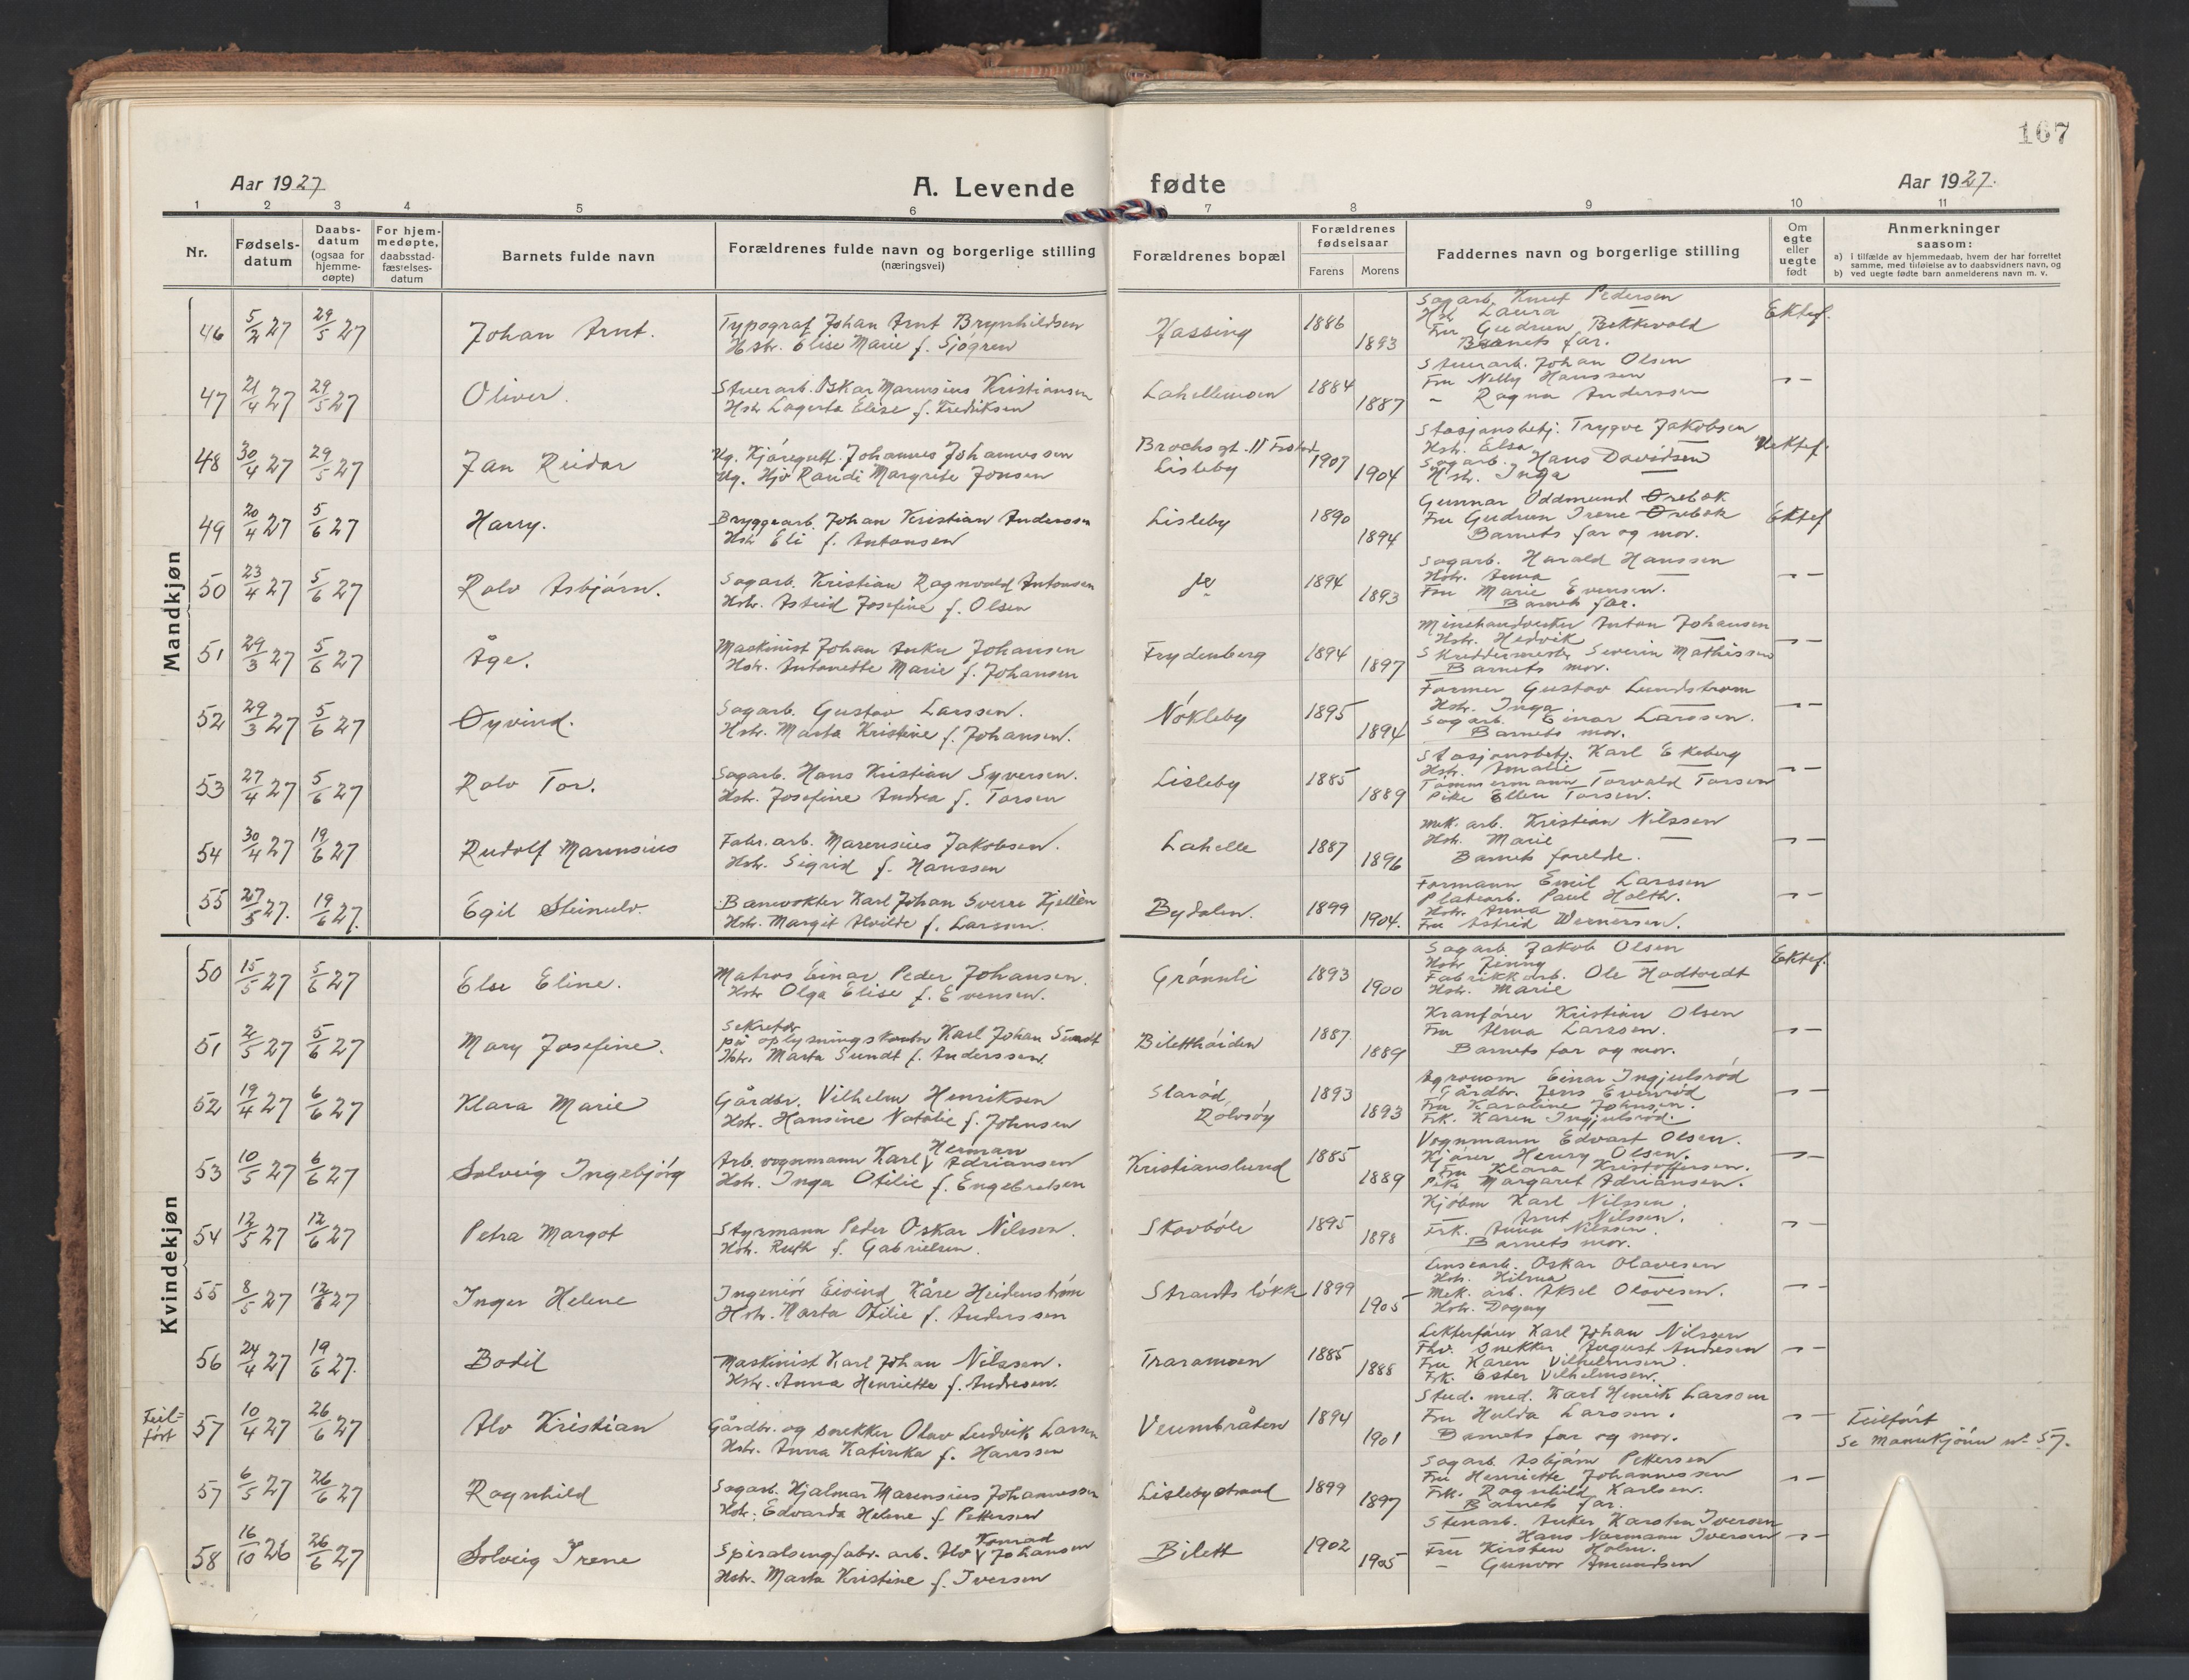 167
Aar 1927
A. Levende fødte
Aar 1927.
1 2 3 4 5 6 7 8 9 10 11
Nr.
Fødsels-datum
Daabs-datum (ogsaa for hjemme-døpte)
For hjem-medøpte, daabsstad-fæstelses-datum
Barnets fulde navn
Forældrenes fulde navn og borgerlige stilling
(næringsvei)
Forældrenes bopæl
Forældrenes fødselsaar
Farens Morens
Faddernes navn og borgerlige stilling
Om egte eller uegte født
Anmerkninger
saasom:
a) i tilfælde av hjemmedaab, hvem der har forrettet samme, med tilføielse av to daabsvidners navn, og
b) ved uegte fødte barn anmelderens navn m. v.
Mandkjøn
46 5/2 27 29/5 27 Johan Arnt. Typograf Johan Arnt Brynhildsen
Hstr. Elise Marie f. Sjøgren
Hassing 1886 1893
Sagarb. Knut Pedersen
Hst Laura —
Fru Gudrun Bekkevold
Barnets far.
Ektef.
47 21/4 27 29/5 27 Oliver. Stuerarb. Oskar Marensius Kristiansen
Hstr Lagerta Elise f. Fredriksen
Lahellemoen 1884 1887
Stuerarb. Johan Olsen
Fru Nelly Hanssen
" Ragna Anderssen
— " —
48 30/4 27 29/5 27 Jan Reidar Ug. Kjøregutt. Johannes Johannessen
Ug. Hjv Randi Margrete Jonsen
Brochsgt. 11 Frstad
Lisleby 1907 1904
Stasjonsbetj. Trygve Jakobsen
Hstr. Elsa —
Sagarb. Hans Davidsen
Hstr. Inga —
Uektef.
49 20/4 27 5/6 27 Harry. Bryggearb. Johan Kristian Andersen
Hstr Eli f. Antonsen
Lisleby 1890 1894
Gunnar Oddmund Ørebæk
Fru Gudrun Irene Ørebæk
Barnets far og mor.
Ektef
50 23/4 27 5/6 27 Rolv Asbjørn. Sagarb. Kristian Ragnvald Antonsen
Hstr. Astrid Josefine f. Olsen
1894 1893
Sagarb. Harald Hanssen
Hstr. Anna —
Fru Marie Evensen.
Barnets far.
— " —
51 29/3 27 5/6 27 Åge. Maskinist Johan Anker Johansen
Hstr. Antonette Marie f. Johansen
Frydenberg 1894 1897
Anton Johansen
Hstr. Hedvik —
Skreddermester Severin Mathissen
Barnets mor.
— " —
52 29/3 27 5/6 27 Øyvind. Sagarb. Gustav Larssen.
Hstr. Marta Kristine f. Johansen.
Nøkleby 1895 1894
Former Gustav Lundstrøm
Hstr. Inga —
Sagarb. Einar Larssen.
Barnets mor.
— " —
53 27/4 27 5/6 27 Rolv Tor. Sagarb. Hans Kristian Syversen.
Hstr. Josefine Andrea f. Torsen
Lisleby 1885 1889
Stasjonsbetj. Karl Ekeberg
Hstr. Amalie —
Tømmermann Torvald Torsen
Pike Ellen Torsen.
— " —
54 30/4 27 19/6 27 Rudolf Marensius Fabr. arb. Marensius Jakobsen.
Hstr. Sigrid f. Hanssen
Lahelle 1887 1896
Mek. arb. Kristian Nilssen
Hstr. Marie —
Barnets forelde.
— " —
55 27/5 27. 19/6 27. Egil Steinulv. Banevokter Karl Johan Sverre Kjellèn
Hstr. Margit Alvilde f. Larssen.
Bydalen. 1899 1904.
Formann Emil Larssen
Platearb. Paul Holthr.
Hstr. Anna —
Fru Astrid Wernersen.
— " —
Kvindekjøn
50 15/5 27 5/6 27 Else Eline. Matros Einar Peder Johansen.
Hstr Olga Elise f. Evensen.
Grønnli 1893 1900
Sagarb. Jakob Olsen
Hstr Jenny —
Fabrikkarb. Ole Hadtvedt
Hstr. Marie —
Ektef.
51 2/5 27 5/6 27 Mary Josefine. Sekretær
på oplysningskontor Karl Johan Sundt
Hstr. Marta Sundt f. Anderssen.
Biletthøiden 1887. 1889
Kranfører Kristian Olsen
Fru Alma Larssen.
Barnets far og mor.
— " —
52 19/4 27 6/6 27 Klara Marie Gårdbr. Vilhelm Henriksen
Hstr. Hansine Natalie f. Johnsen
Slarød, Rolvsøy 1893 1893
Agronom Einar Ingjulsrød
Gårdbr. Jens Evenrød
Fru Karoline Johnsen.
Frk. Karen Ingjulsrød.
— " —
53 10/5 27 6/6 27 Solveig Ingebjørg Arb. vognmann Karl Herman Adriansen
Hstr. Inga Otilie f. Engebretsen
Kristianslund 1885 1889
Vognmann Edvart Olsen.
Kjører Henry Olsen.
Fru Klara Kristoffersen.
Pike Margaret Adriansen.
— " —
54 12/5 27 12/6 27 Petra Margot Styrmann Peder Oskar Nilssen.
Hstr. Ruth f. Gabrielsen.
Skovbøle 1895 1898
Kjøbm Karl Nilssen.
— Arnt Nilssen.
Frk. Anna Nilssen.
Barnets mor.
— " —
55 8/5 27 12/6 27 Inger Helene Ingeniør Eivind Kåre Heidenstrøm
Hstr. Marta Otilie f. Anderssen
Strandsløkk 1899 1905
Oskar Olavesen
Hstr. Hilma —
Mek. arb. Aksel Olavesen.
Hstr. Dagny —
— " —
56 24/4 27 19/6 27. Bodil Maskinist Karl Johan Nilssen.
Hstr. Anna Henriette f. Andresen.
Traramoen 1885 1888
Lekterfører Karl Johan Nilssen
Fhv. Snekker August Andresen
Fru Karen Vilhelmsen.
Frk. Ester Vilhelmsen.
— " —
Feil=
ført
57 10/4 27 26/6 27 Alv Kristian Gårdbr. og snekker Olav Ludvik Larsen
Hstr. Anna Katinka f. Hanssen
Veumbråten 1894 1901
Stud. med. Karl Henrik Larssen
Fru Hulda Larssen.
Barnets far og mor.
— " —
Feilført
Se Mannkjønn nr 57.
57 6/5 27 26/6 27 Ragnhild Sagarb. Hjalmar Marensius Johannessen
Hstr. Edvarda Helene f. Pettersen
Lislebystrand 1899 1897
Sagarb. Asbjørn Pettersen
Fru Henriette Johannessen
Frk. Ragnhild Karlsen.
Barnets far.
— " —
58 16/10 26 26/6 27 Solveig Irene Spiralsengfabr. arb. Alv Konrad Johansen
Hstr. Marta Kristine f. Iversen
Bilett 1902 1905
Stenarb. Anker Karsten Iversen
— Hans Normann Iversen
Fru Kirsten Holm.
" Gunvor Amundsen
— " —